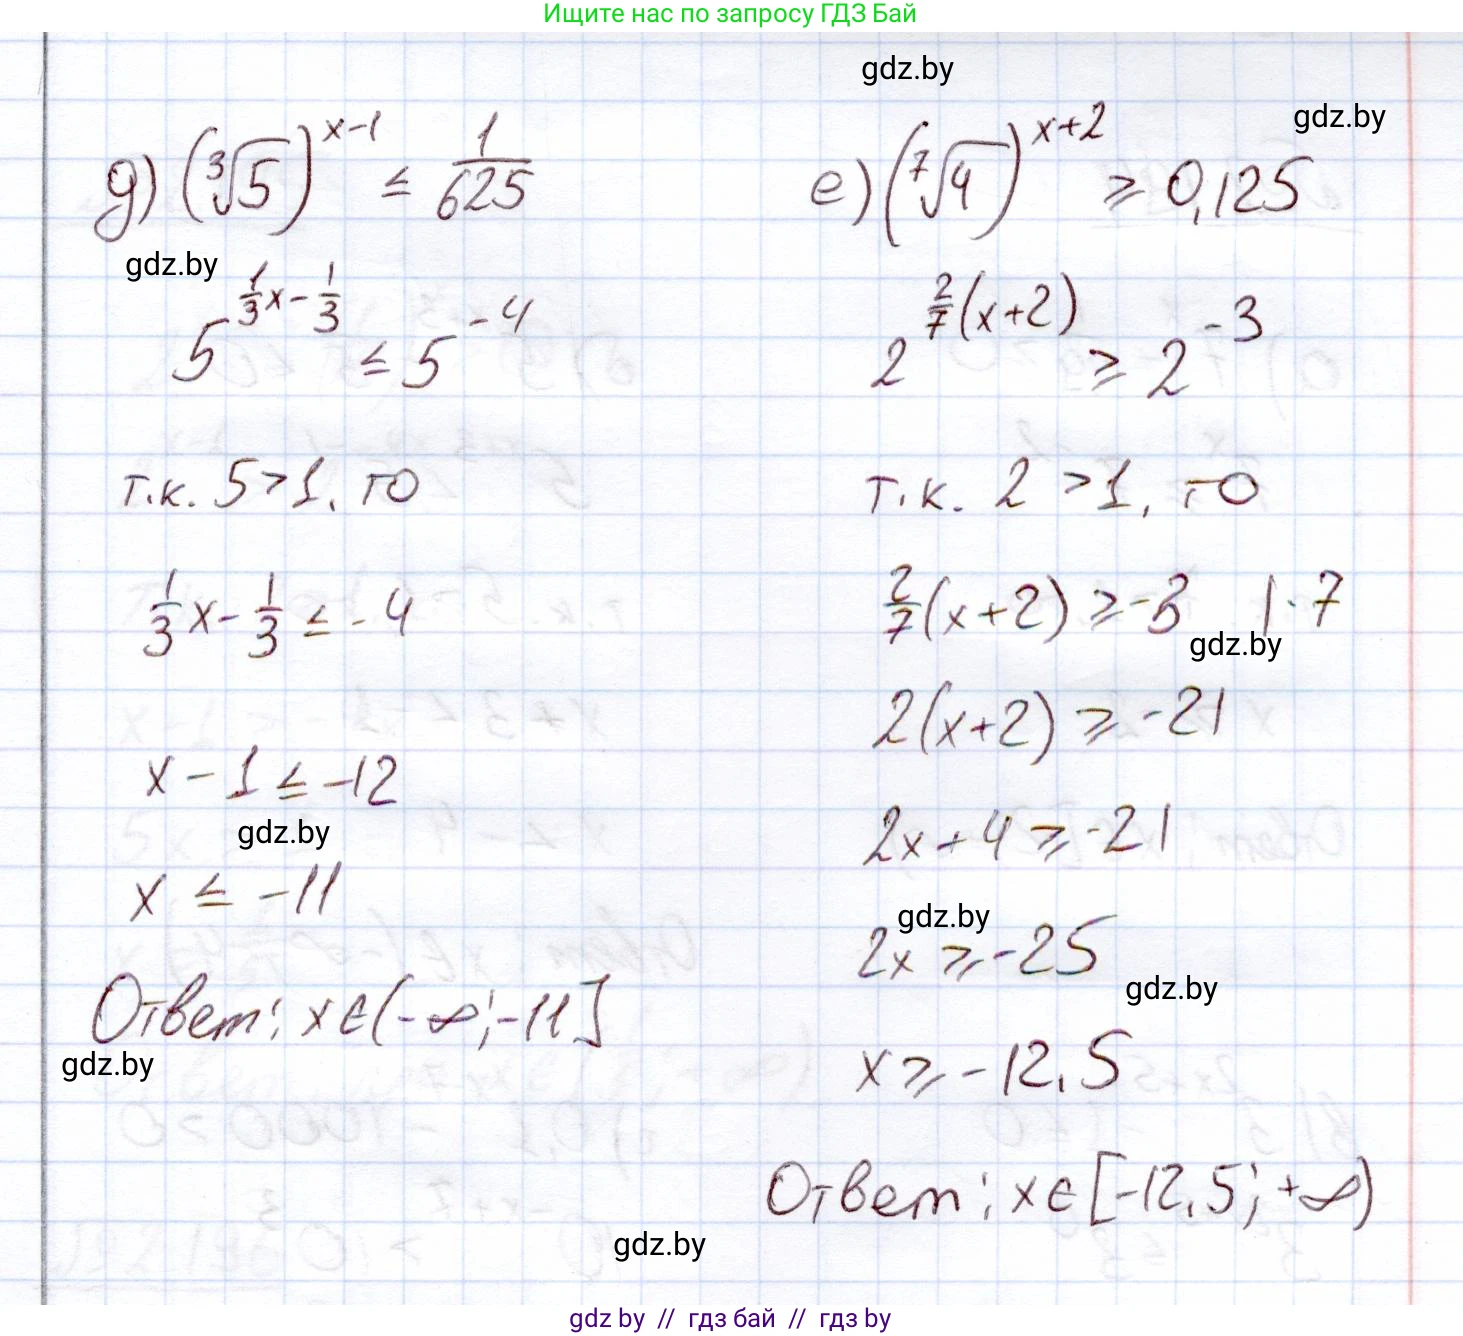 Ищите нас по запросу ГДЗ Бай
gdz.by
gdz.by
д) (∛5)^(x-1) ≤ 1/625
gdz.by
5^(1/3x - 1/3) ≤ 5^(-4)
т.к. 5>1, то
1/3x - 1/3 ≤ -4
x - 1 ≤ -12
gdz.by
x ≤ -11
Ответ: x∈(-∞; -11]
gdz.by
е) (⁷√4)^(x+2) ≥ 0,125
2^(2/7(x+2)) ≥ 2^(-3)
т.к. 2 > 1, то
2/7(x+2) ≥ -3 |·7
gdz.by
2(x+2) ≥ -21
2x + 4 ≥ -21
gdz.by
2x ≥ -25
gdz.by
x ≥ -12,5
Ответ: x∈[-12,5; +∞)
gdz.by
gdz by // гдз бай // гдз by